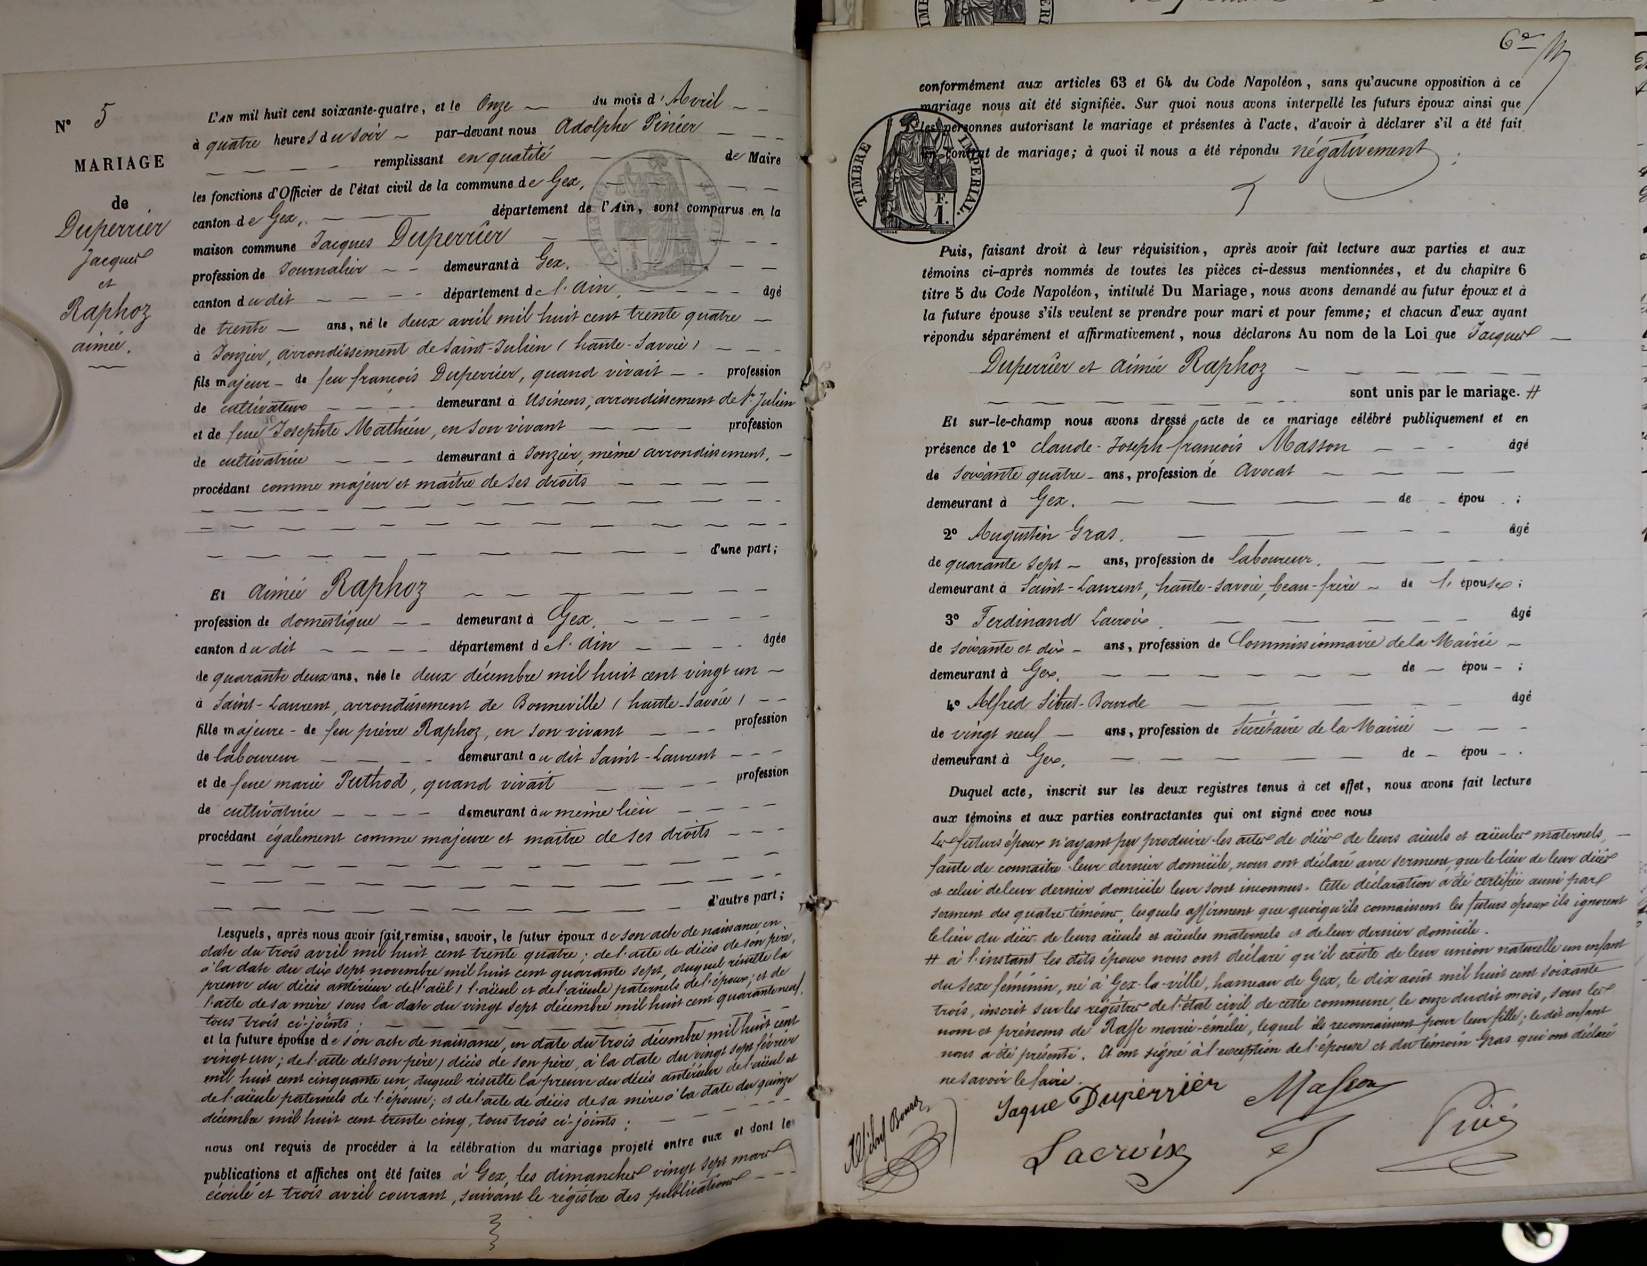 N° 5
MARIAGE
de
Duperrier
Jacques
et
Raphoz
aimée.
L'AN mil huit cent soixante-quatre, et le Onze du mois d'Avril
à quatre heures du soir par-devant nous Adolphe Pinier
remplissant en qualité de Maire
les fonctions d'Officier de l'état civil de la commune de Gex,
canton de Gex, département de l'Ain, sont comparus en la
maison commune Jacques Duperrier
profession de Journalier demeurant à Gex,
canton du dit département de l'ain, âgé
de trente ans, né le deux avril mil huit cent trente quatre
à Jonzier, arrondissement de Saint-Julien (haute-Savoie)
fils majeur de feu françois Duperrier, quand vivait profession
de cultivateur demeurant à Usinens, arrondissement de St Julien
et de feue Josephte Mathieu, en son vivant profession
de cultivatrice demeurant à Jonzier, même arrondissement,
procédant comme majeur et maître de ses droits
d'une part;
Et aimée Raphoz
profession de domestique demeurant à Gex,
canton du dit département de l'ain âgée
de quarante deux ans, née le deux décembre mil huit cent vingt un
à Saint-Laurent, arrondissement de Bonneville (haute-Savoie)
fille majeure de feu pierre Raphoz, en son vivant profession
de laboureur demeurant au dit Saint-Laurent
et de feue marie Puthod, quand vivait profession
de cultivatrice demeurant au même lieu
procédant également comme majeure et maître de ses droits
d'autre part;
Lesquels, après nous avoir fait remise, savoir, le futur époux de son acte de naissance en
date du trois avril mil huit cent trente quatre; de l'acte de décès de son père,
à la date du dix sept novembre mil huit cent quarante sept, duquel résulte la
preuve du décès antérieur de l'aïeul et de l'aïeule paternels de l'époux; et de
l'acte de sa mère sous la date du vingt sept décembre mil huit cent quarante neuf,
tous trois ci-joints;
et la future épouse de son acte de naissance, en date du trois décembre mil huit cent
vingt un; de l'acte de son père) décès de son père, à la date du vingt sept février
mil huit cent cinquante un, duquel résulte la preuve du décès antérieur de l'aïeul et
de l'aïeule paternels de l'épouse; et de l'acte de décès de sa mère à la date du quinze
décembre mil huit cent trente cinq, tous trois ci-joints;
nous ont requis de procéder à la célébration du mariage projeté entre eux et dont les
publications et affiches ont été faites à Gex, les dimanches vingt sept mars
écoulé et trois avril courant, suivant le régistre des publications
6e
conformément aux articles 63 et 64 du Code Napoléon, sans qu'aucune opposition à ce
mariage nous ait été signifiée. Sur quoi nous avons interpellé les futurs époux ainsi que
les personnes autorisant le mariage et présentes à l'acte, d'avoir à déclarer s'il a été fait
un contrat de mariage; à quoi il nous a été répondu négativement;
TIMBRE IMPÉRIAL
1 F.
Puis, faisant droit à leur réquisition, après avoir fait lecture aux parties et aux
témoins ci-après nommés de toutes les pièces ci-dessus mentionnées, et du chapitre 6
titre 5 du Code Napoléon, intitulé Du Mariage, nous avons demandé au futur époux et à
la future épouse s'ils veulent se prendre pour mari et pour femme; et chacun d'eux ayant
répondu séparément et affirmativement, nous déclarons Au nom de la Loi que Jacques
Duperrier et aimée Raphoz
sont unis par le mariage. #
Et sur-le-champ nous avons dressé acte de ce mariage célébré publiquement et en
présence de 1° claude-Joseph-françois Masson âgé
de soixante quatre ans, profession de Avocat
demeurant à Gex. de épou ;
2° Augustin Gras. âgé
de quarante sept ans, profession de laboureur.
demeurant à Saint-Laurent, haute-savoie, beau-frère de l'épouse;
3° Ferdinand Lacroix. âgé
de soixante et dix ans, profession de Commissionnaire de la Mairie
demeurant à Gex. de épou ;
4° Alfred Sibut-Bourde âgé
de vingt neuf ans, profession de Secrétaire de la Mairie
demeurant à Gex. de épou .
Duquel acte, inscrit sur les deux registres tenus à cet effet, nous avons fait lecture
aux témoins et aux parties contractantes qui ont signé avec nous
Les futurs époux n'ayant pu produire les actes de décès de leurs aïeuls et aïeules maternels,
faute de connaître leur dernier domicile, nous ont déclaré avec serment que le lieu de leur décès
et celui de leur dernier domicile leur sont inconnus. Cette déclaration a été certifiée aussi par
serment des quatre témoins, lesquels affirment que quoiqu'ils connaissent les futurs époux ils ignorent
le lieu du décès de leurs aïeuls et aïeules maternels et de leur dernier domicile.
# à l'instant les dits époux nous ont déclaré qu'il existe de leur union naturelle un enfant
du sexe féminin, né à Gex-la-ville, hameau de Gex, le dix août mil huit cent soixante
trois, inscrit sur les régistres de l'état civil de cette commune, le onze dudit mois, sous les
nom et prénoms de Raffe marie-émélie, lequel ils reconnaissent pour leur fille; le dit enfant
nous a été présenté. Et ont signé à l'exception de l'épouse et du témoin Gras qui ont déclaré
ne savoir le faire.
Jaque Duperrier
Masson
Lacroix